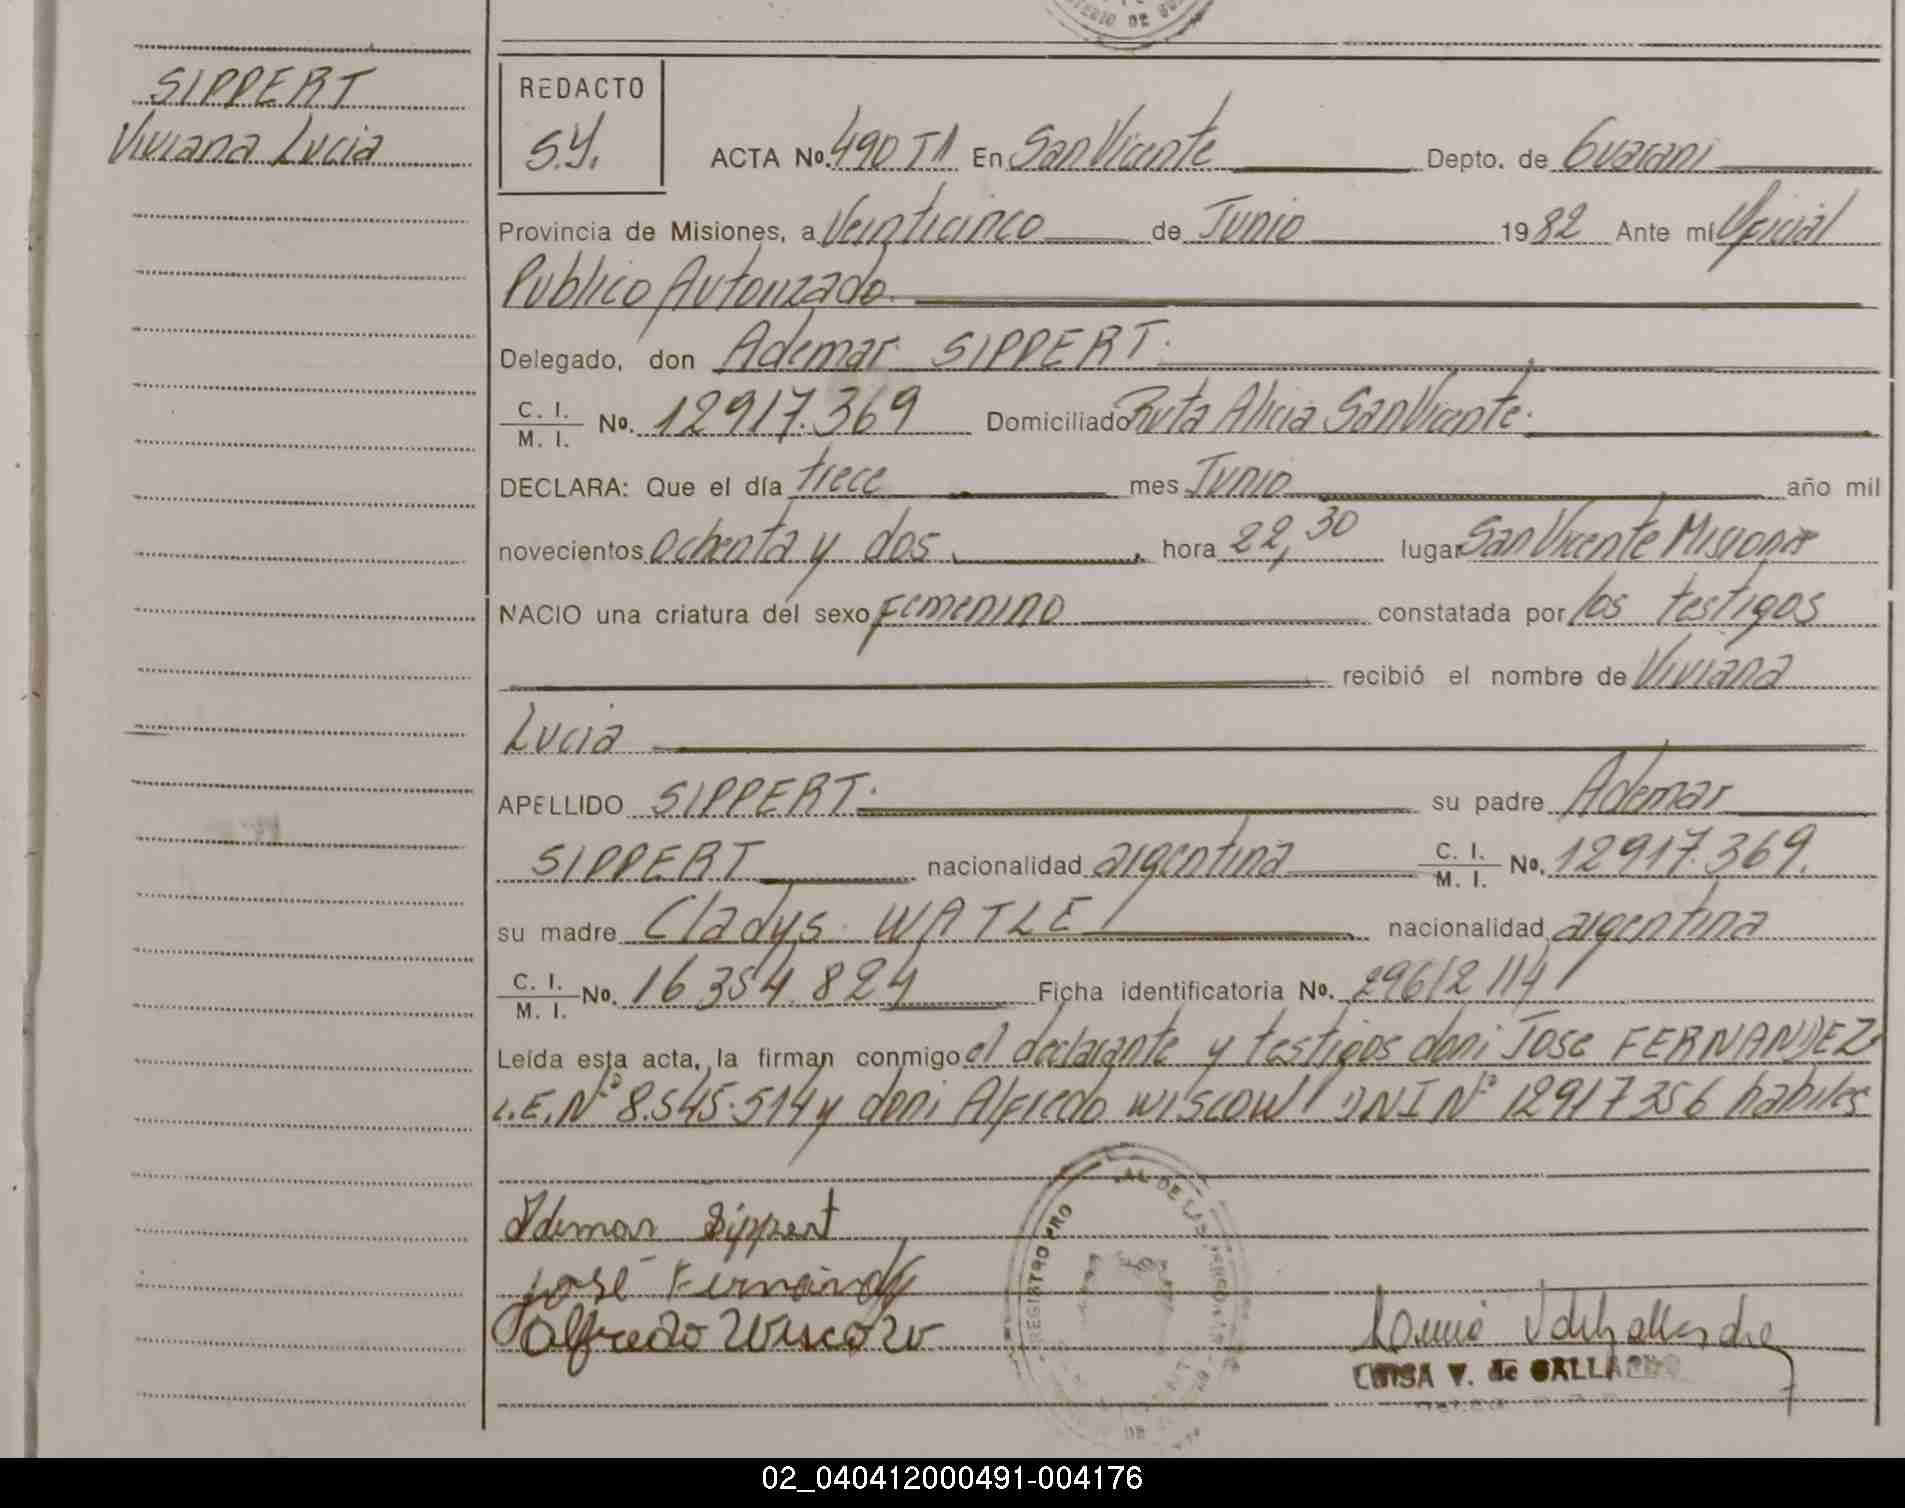 SIPPERT
Viviana Lucia
REDACTO
S.Y.
ACTA No. 490 T1 En San Vicente Depto. de Guarani
Provincia de Misiones, a Veinticinco de Junio 1982 Ante mi Oficial
Publico Autorizado.
Delegado, don Ademar SIPPERT.
C. I. / M. I. No. 12917.369 Domiciliado Ruta Alicia San Vicente.
DECLARA: Que el día trece mes Junio año mil
novecientos ochenta y dos hora 22,30 lugar San Vicente Misiones
NACIO una criatura del sexo Femenino constatada por los testigos
recibió el nombre de Viviana
Lucia
APELLIDO SIPPERT. su padre Ademar
SIPPERT nacionalidad argentina C. I. / M. I. No. 12917.369.
su madre Cladys WATLE nacionalidad argentina
C. I. / M. I. No. 16.354.824 Ficha identificatoria No.
Leída esta acta, la firman conmigo el declarante y testigos don: Jose FERNANDEZ
L.E.Nº 8.545.514 y don: Alfredo WISCOW DNI Nº 12917356 habiles
Ademar Sippert
José Fernández
Alfredo Wiscow
REGISTRO PRO AL DE LAS
LUISA V. de GALLARDO
02_040412000491-004176